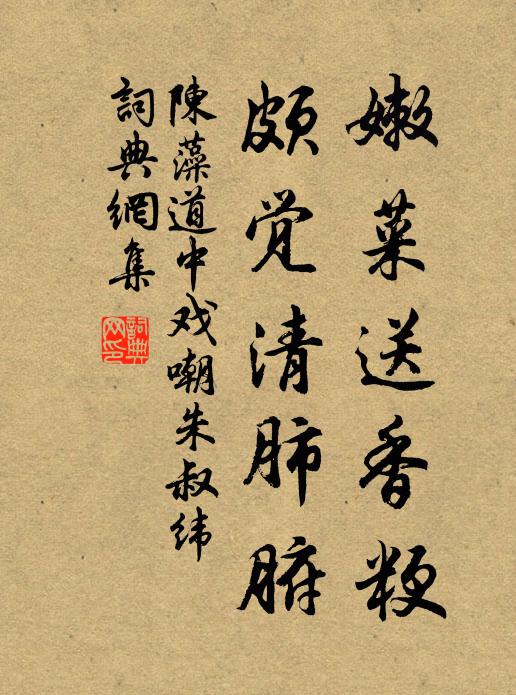 嫩菜送香粳
頗觉清肺腑
陳藻道中戏嘲朱叔纬
詞典網集
詞典网印